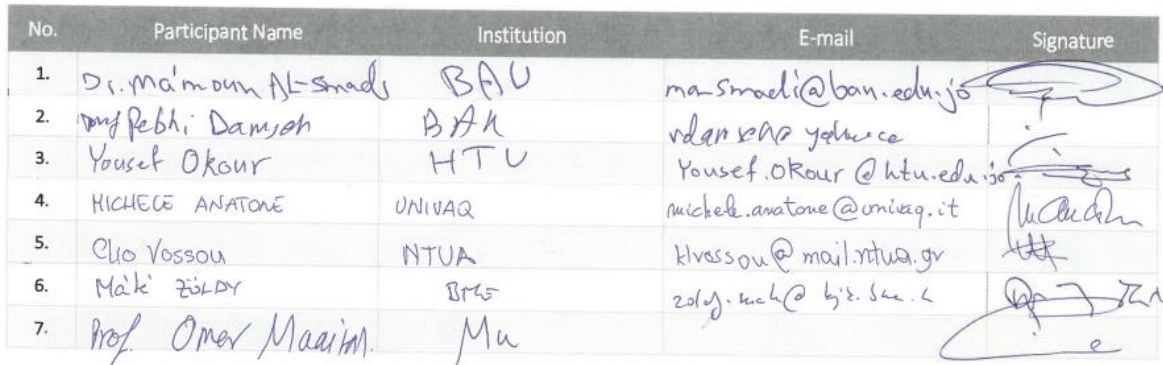 No. Participant Name Institution E-mail Signature
1. Dr. Ma'moun AL-Smadi BAU ma-smadi@bau.edu.jo
2. Damseh BAU
3. Yousef Okour HTU Yousef.Okour@htu.edu.jo
4. MICHELE ANATONE UNIVAQ michele.anatone@univaq.it
5. Clio Vossou NTUA klvossou@mail.ntua.gr
6. Máté ZÖLDY BME
7. Prof. Omer Mu